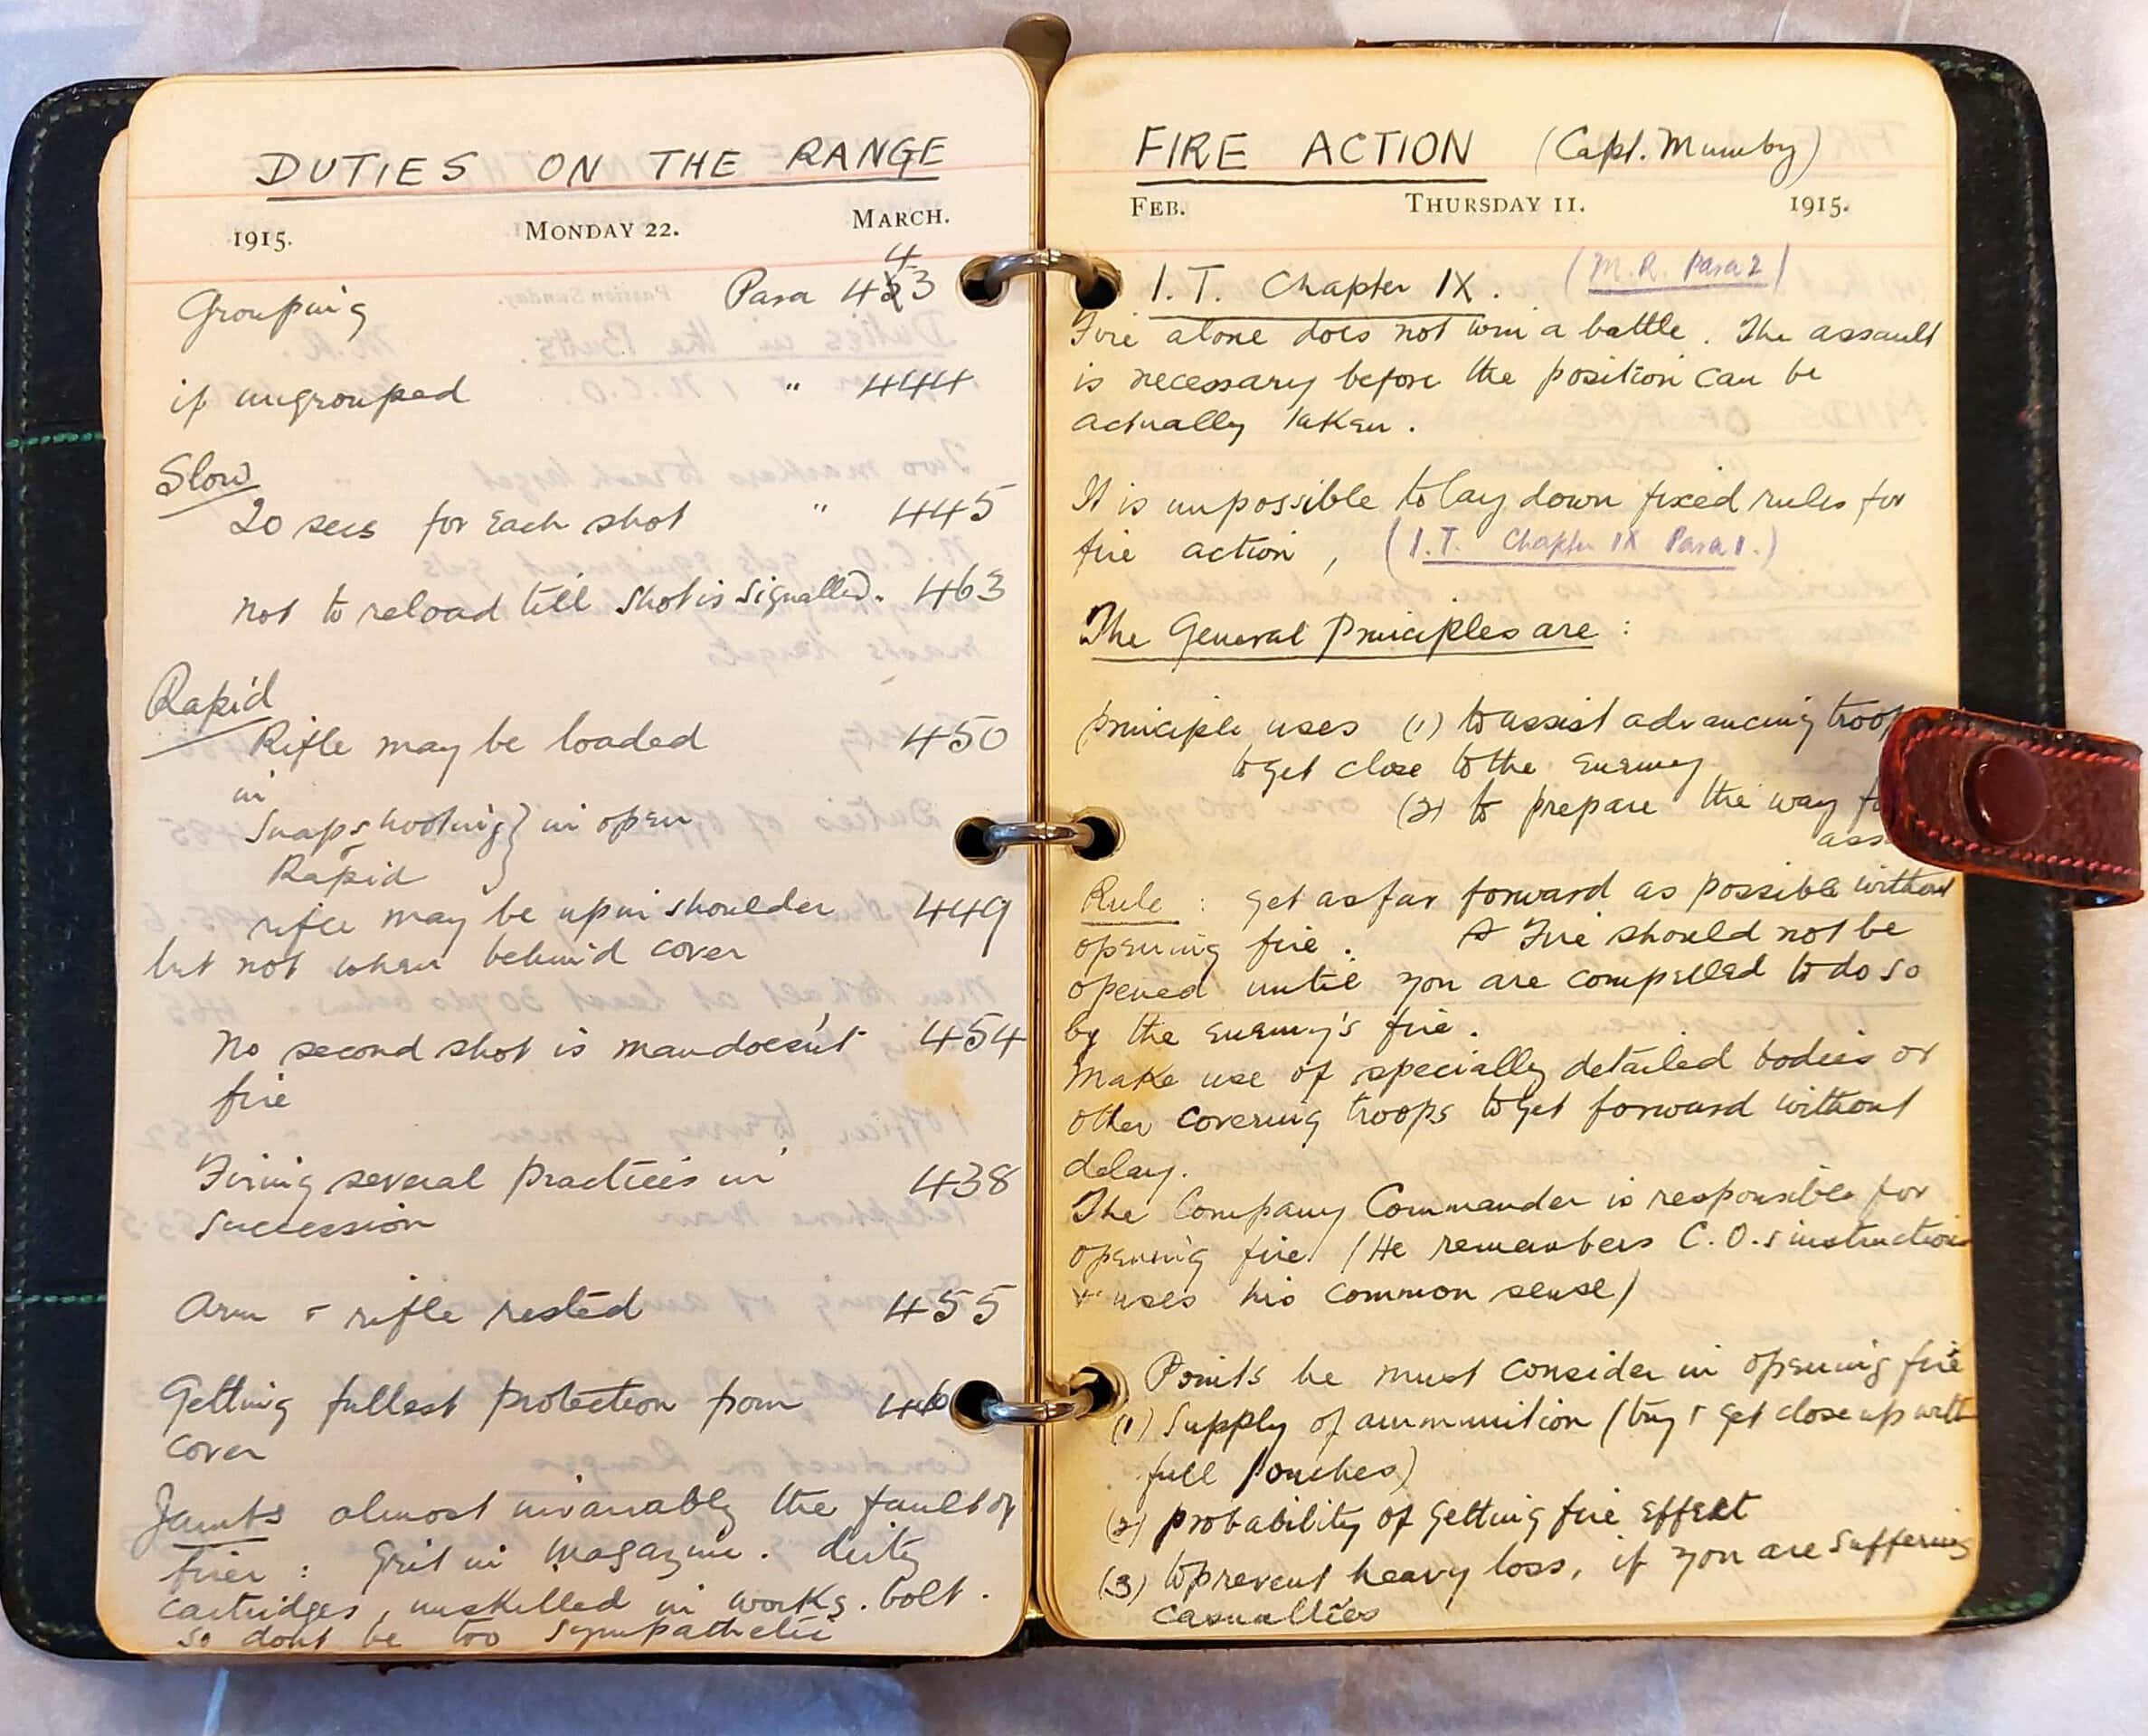 DUTIES ON THE RANGE
1915. MONDAY 22. MARCH.
Grouping Para 443
if ungrouped " 444
Slow
20 secs for each shot " 445
not to reload till shot is signalled. 463
Rapid
Rifle may be loaded 450
in
Snapshooting } in open
Rapid
rifle may be up in shoulder 449
but not when behind cover
No second shot is man doesn't 454
fire
Firing several practices in 438
succession
Arm & rifle rested 455
Getting fullest protection from
cover
Jambs almost invariably the fault of
firer : Grit in magazine. dirty
cartridges, unskilled in works. bolt.
so dont be too sympathetic
FIRE ACTION (Capt. Mumby)
FEB. THURSDAY 11. 1915.
I.T. Chapter IX. (M.R. Para 2)
Fire alone does not win a battle. The assault
is necessary before the position can be
actually taken.
It is impossible to lay down fixed rules for
fire action, (I.T. Chapter IX Para 1.)
The General Principles are :
principle uses (1) to assist advancing troop
to get close to the enemy
(2) to prepare the way
ass
Rule : get as far forward as possible without
opening fire. Fire should not be
opened until you are compelled to do so
by the enemy's fire.
Make use of specially detailed bodies or
other covering troops to get forward without
delay.
The Company Commander is responsible for
opening fire (He remembers C.O.s instructions
& uses his common sense)
Points he must consider in opening fire
(1) Supply of ammunition (try & get close up with
full pouches)
(2) probability of getting fire effect
(3) to prevent heavy loss, if you are suffering
casualties